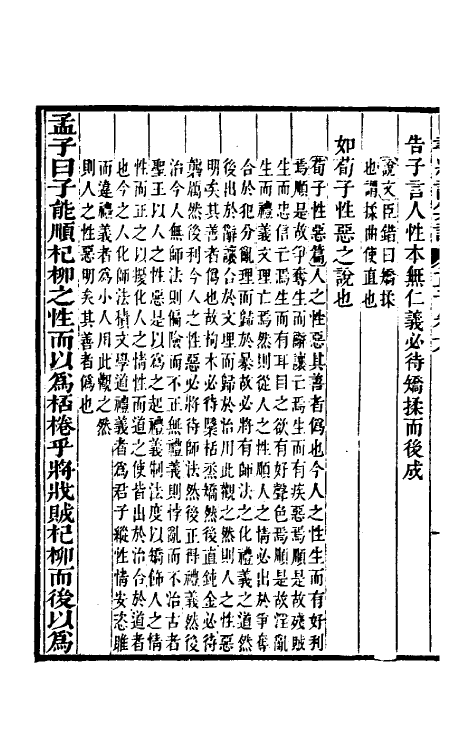 告子言人性本無仁義必待矯揉而後成
說文臣鍇曰矯揉
也謂揉曲使直也
如荀子性惡之說也
荀子性惡篇人之性惡其善者偽也今人之性生而有好利
焉順是故爭奪生而辭讓亡焉生而有疾惡焉順是故殘賊
生而忠信亡焉生而有耳目之欲有好聲色焉順是故淫亂
生而禮義文理亡焉然則從人之性順人之情必出於爭奪
合於犯分亂理而歸於暴故必將有師法之化禮義之道然
後出於辭讓合於文理而歸於治用此觀之然則人之性惡
明矣其善者偽也故拘木必待檃栝烝矯然後直鈍金必待
礱礪然後利今人之性惡必將待師法然後正得禮義然後
治今人無師法則偏險而不正無禮義則悖亂而不治古者
聖王以人之性惡是以為之起禮義制法度以矯飾人之情
性而正之以擾化人之情性而道之使皆出於治合於道者
也今之人化師法積文學道禮義者為君子縱性情安恣睢
而違禮義者為小人用此觀之然
則人之性惡明矣其善者偽也
孟子曰子能順杞柳之性而以爲桮棬乎將戕賊杞柳而後以爲